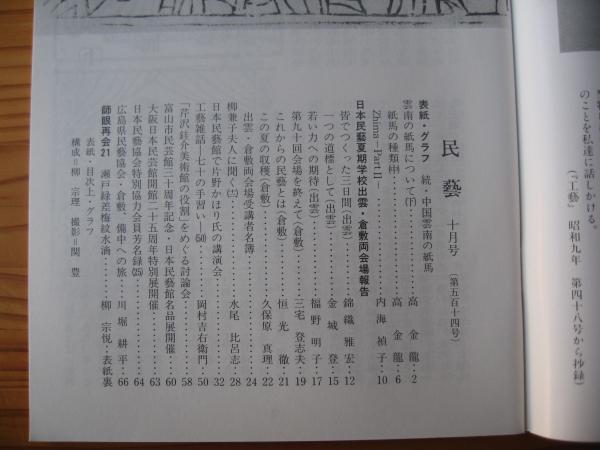 のことを私達に話しかける。
(「工藝」 昭和九年 第四十八号から抄録)
民藝 十月号 (第五百十四号)
表紙・グラフ 続・中国雲南の紙馬
雲南の紙馬について(下) 高 金龍 2
紙馬の種類(中) 高 金龍 6
Zhima—Part II— 内海 禎子 10
日本民藝夏期学校出雲・倉敷両会場報告
皆でつくった三日間(出雲) 錦織 雅宏 12
一つの道標として(出雲) 金城 登 15
若い力への期待(出雲) 福野 明子 17
第九十回会場を終えて(倉敷) 三宅 登志夫 19
これからの民藝とは(倉敷) 恒光 徹 21
この夏の収穫(倉敷) 久保原 真理 22
出雲・倉敷両会場受講者名簿 24
柳兼子夫人に聞く(三) 水尾 比呂志 28
日本民藝館で片野かほり氏の講演会 32
工藝雑話—七十の手習い—(50) 岡村吉右衛門 50
「芹沢銈介美術館の役割」をめぐる討論会 58
富山市民芸館三十周年記念・日本民藝館名品展開催 60
大阪日本民芸館開館二十五周年特別展開催 63
日本民藝協会特別協力会員芳名録(25) 64
広島県民藝協会・倉敷、備中への旅 川堀 耕平 66
師眼再会21 瀬戸緑差梅紋水滴 柳 宗悦・表紙裏
表紙・目次上・グラフ
構成=柳 宗理 撮影=関 豊